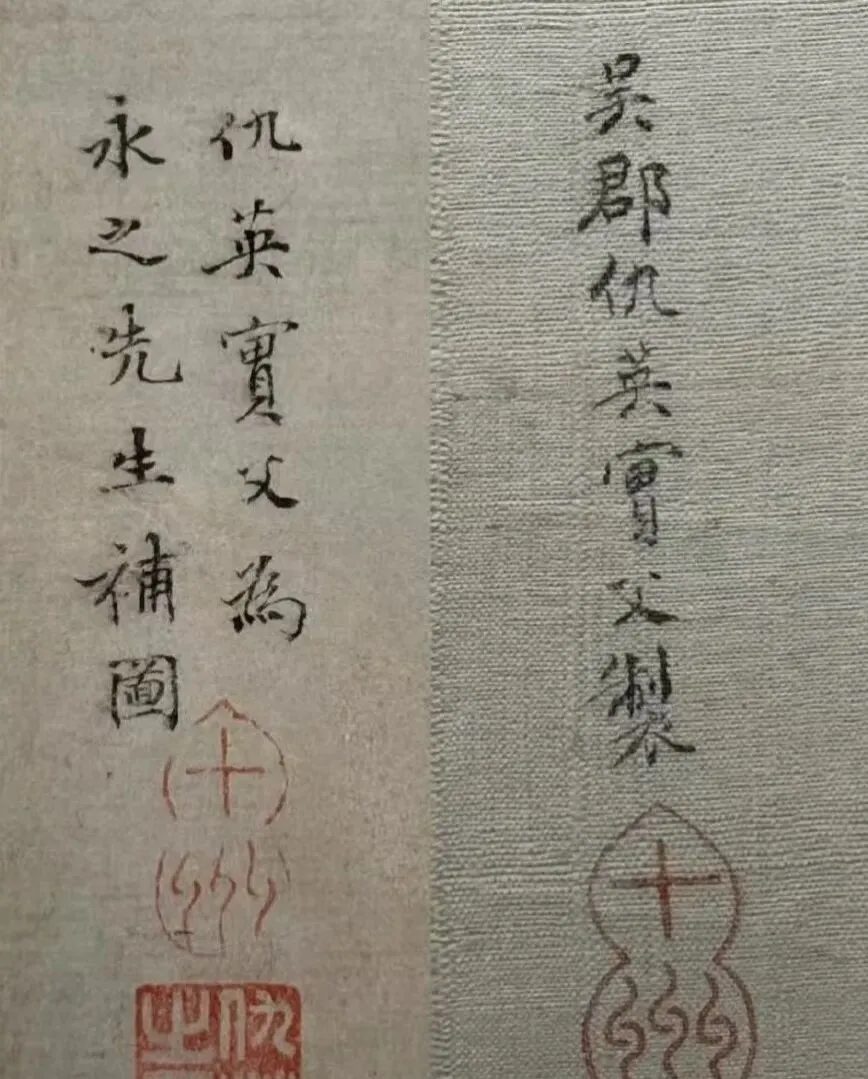 仇英實父為
永之先生補圖
十洲
仇
吳郡仇英實父製
十洲